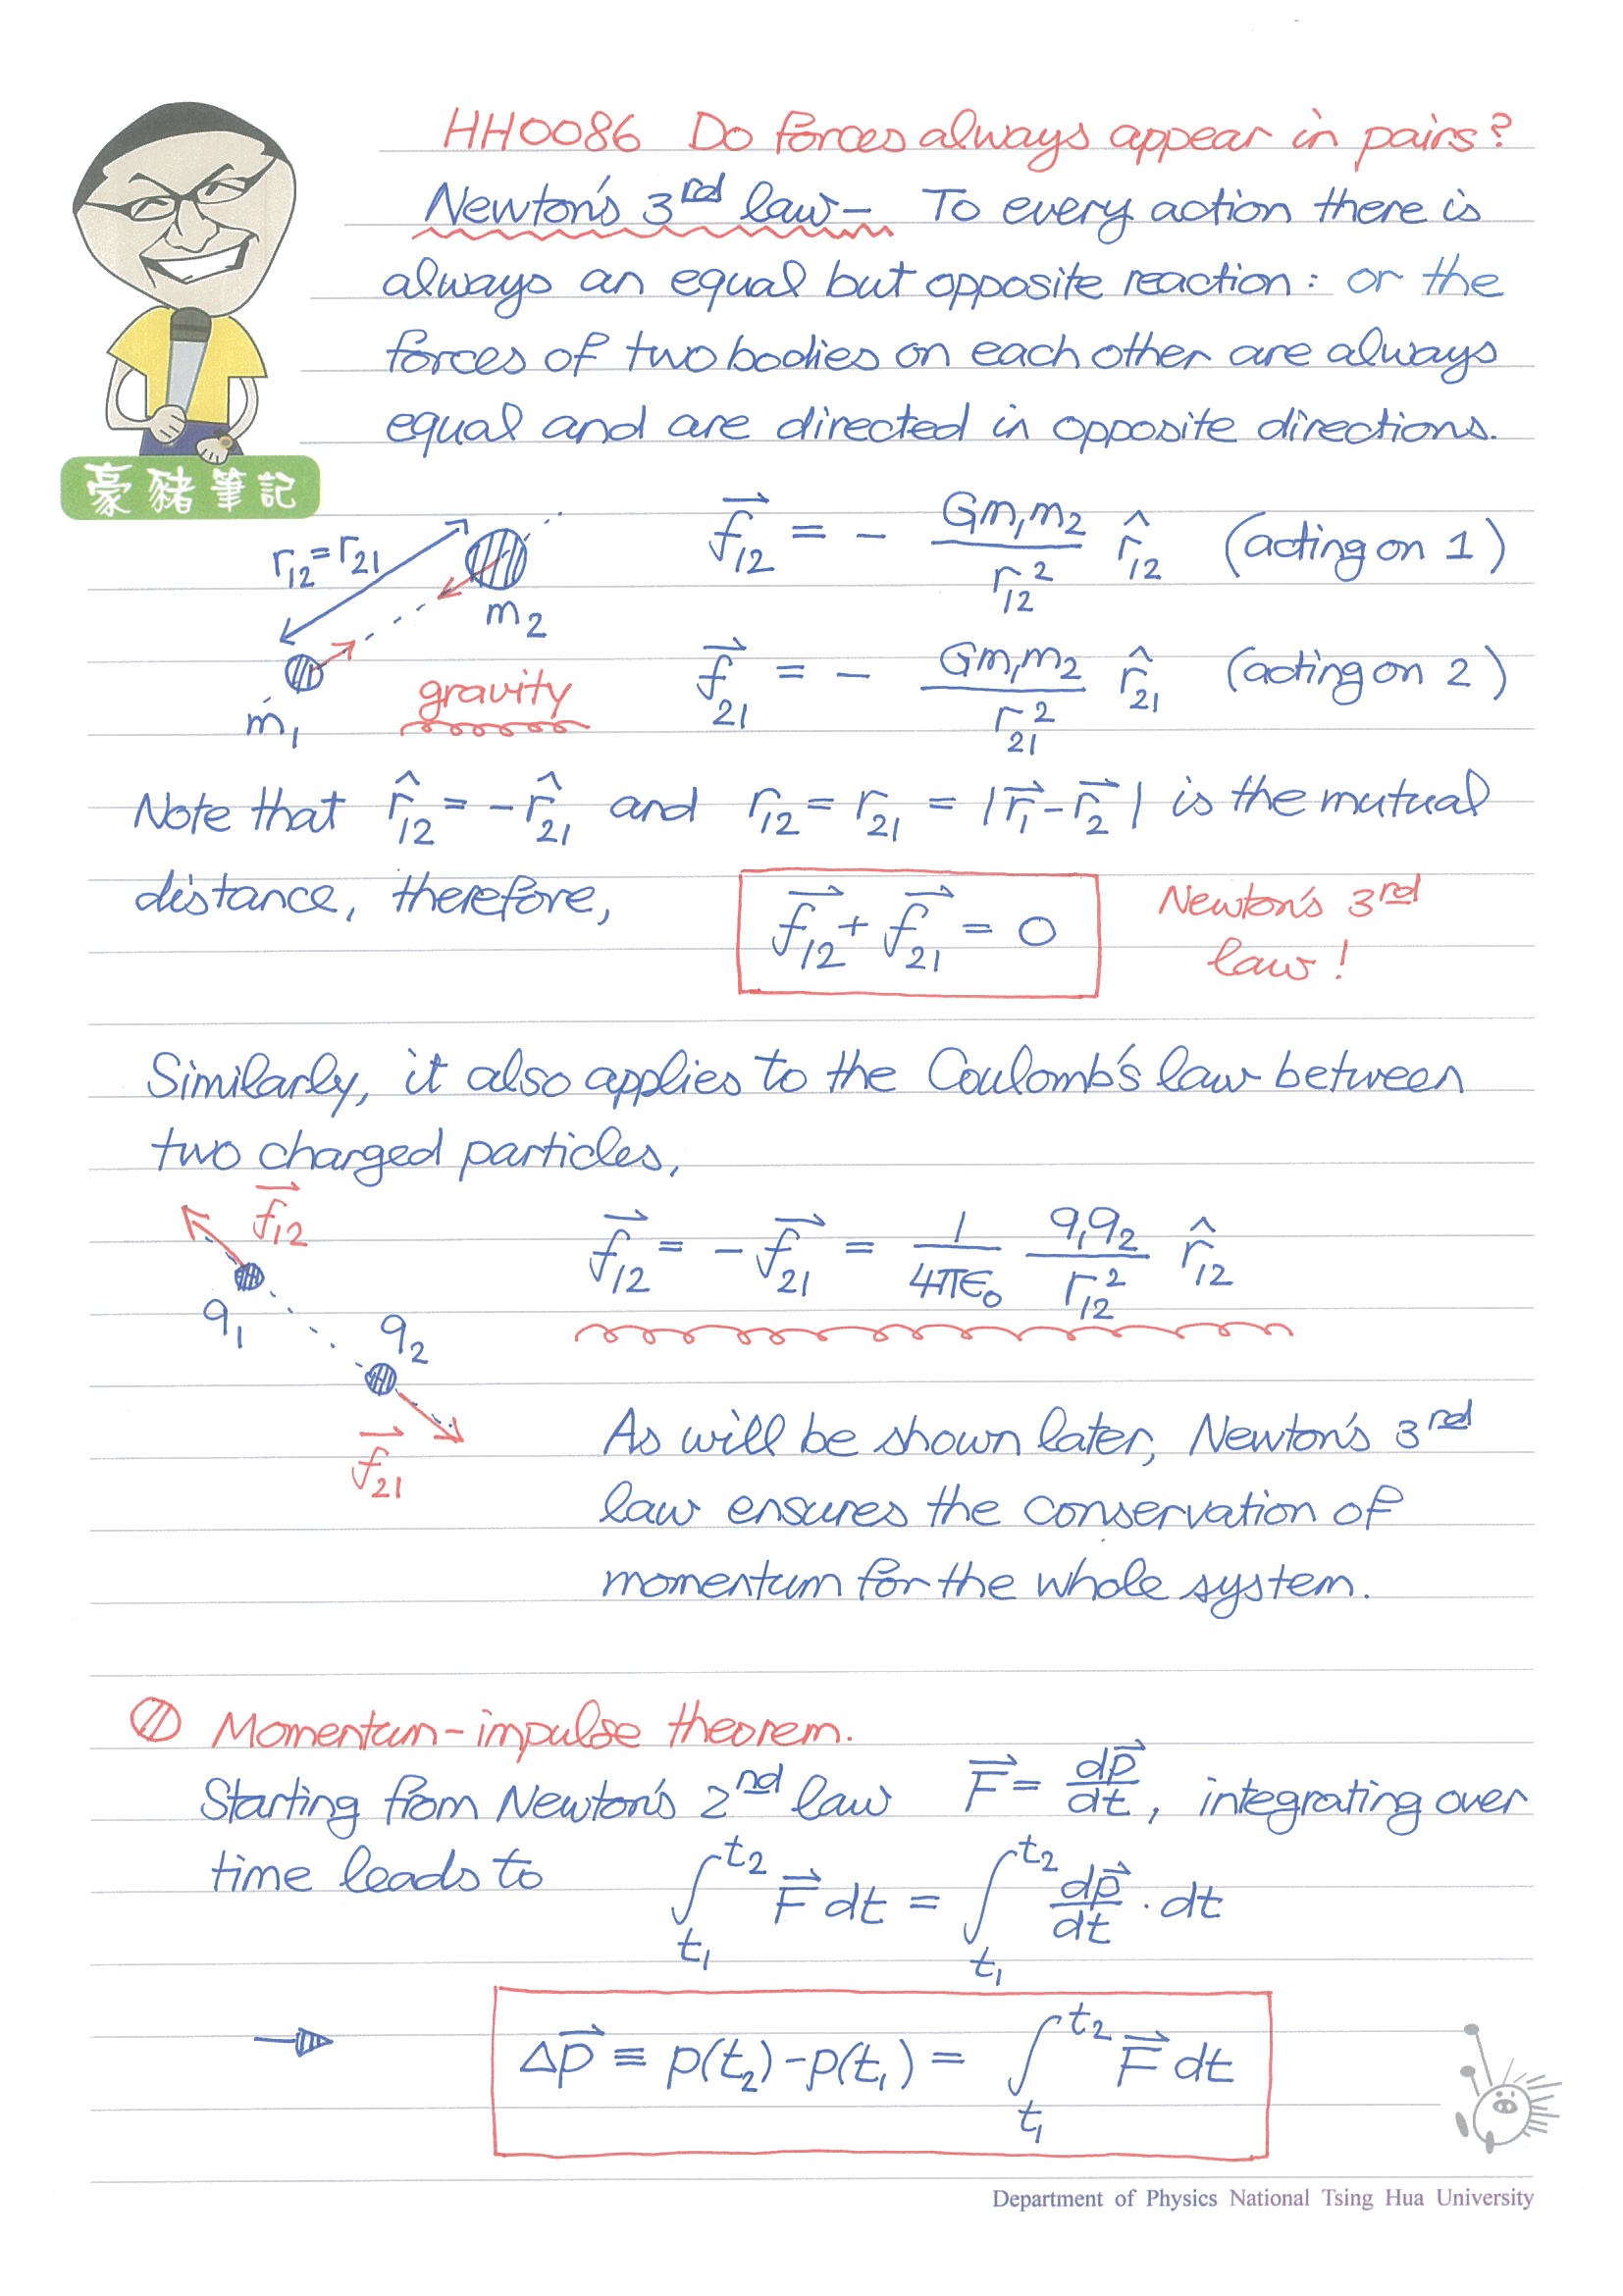 HH0086 Do forces always appear in pairs?
Newton's 3rd law — To every action there is
always an equal but opposite reaction: or the
forces of two bodies on each other are always
equal and are directed in opposite directions.
豪豬筆記
r₁₂=r₂₁
m₂
m₁
gravity
f⃗₁₂ = - Gm₁m₂/r₁₂² r̂₁₂ (acting on 1)
f⃗₂₁ = - Gm₁m₂/r₂₁² r̂₂₁ (acting on 2)
Note that r̂₁₂ = -r̂₂₁ and r₁₂ = r₂₁ = |r⃗₁-r⃗₂| is the mutual
distance, therefore, f⃗₁₂ + f⃗₂₁ = 0 Newton's 3rd
law!
Similarly, it also applies to the Coulomb's law between
two charged particles,
f⃗₁₂
q₁
q₂
f⃗₂₁
f⃗₁₂ = -f⃗₂₁ = 1/4πϵ₀ q₁q₂/r₁₂² r̂₁₂
As will be shown later, Newton's 3rd
law ensures the conservation of
momentum for the whole system.
Momentum-impulse theorem.
Starting from Newton's 2nd law F⃗ = dp⃗/dt, integrating over
time leads to ∫t₁t₂ F⃗ dt = ∫t₁t₂ dp⃗/dt · dt
Δp⃗ ≡ p(t₂)-p(t₁) = ∫t₁t₂ F⃗ dt
Department of Physics National Tsing Hua University